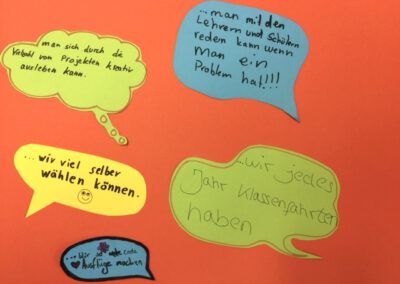 man sich durch die
Vielzahl von Projekten kreativ
ausleben kann.
...man mit den
Lehrern und Schülern
reden kann wenn
man ein
Problem hat!!!
... wir viel selber
wählen können.
...wir jedes
Jahr Klassenfahrten
haben
...wir so coole
Ausflüge machen